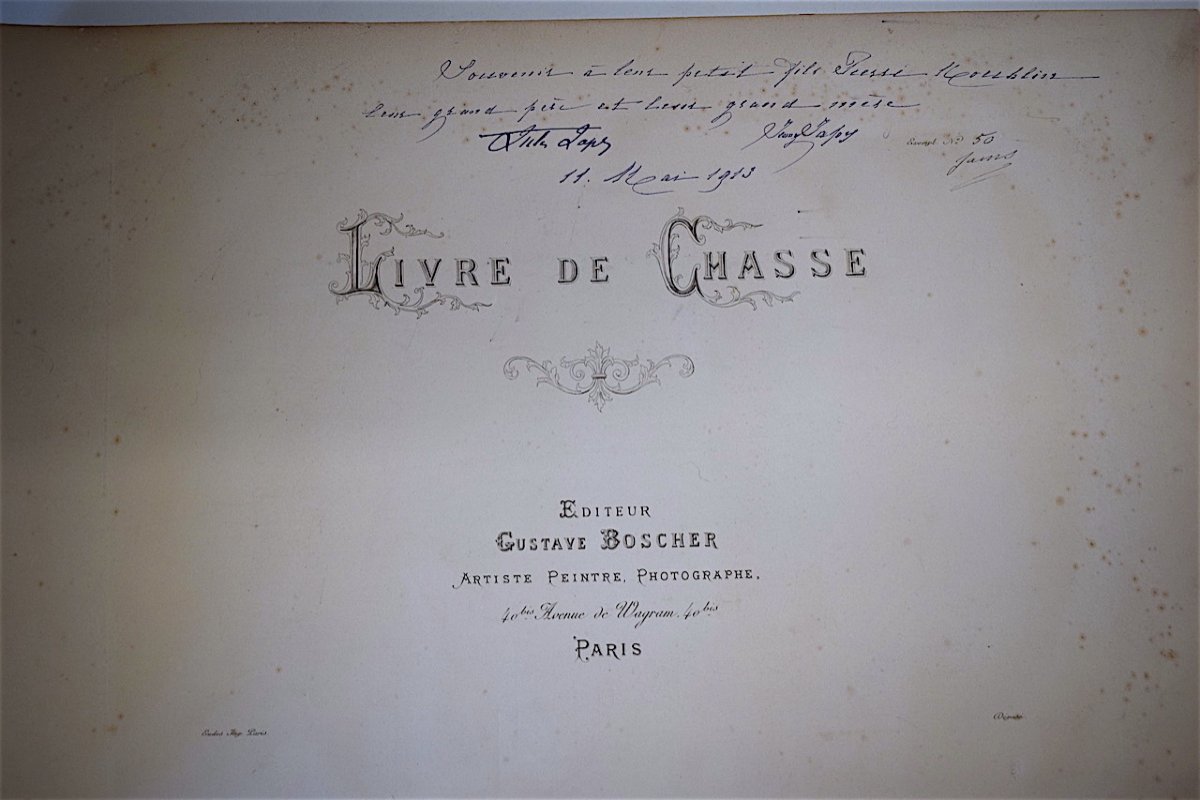 Souvenir à leur petit fils Pierre Koechlin
leur grand père et leur grand mère
Jules Japy
Japy
11. Mai 1913
Exempl. No 50
LIVRE DE CHASSE
EDITEUR
GUSTAVE BOSCHER
ARTISTE PEINTRE, PHOTOGRAPHE,
40bis Avenue de Wagram. 40bis
PARIS
Eudes Imp. Paris
Déposé